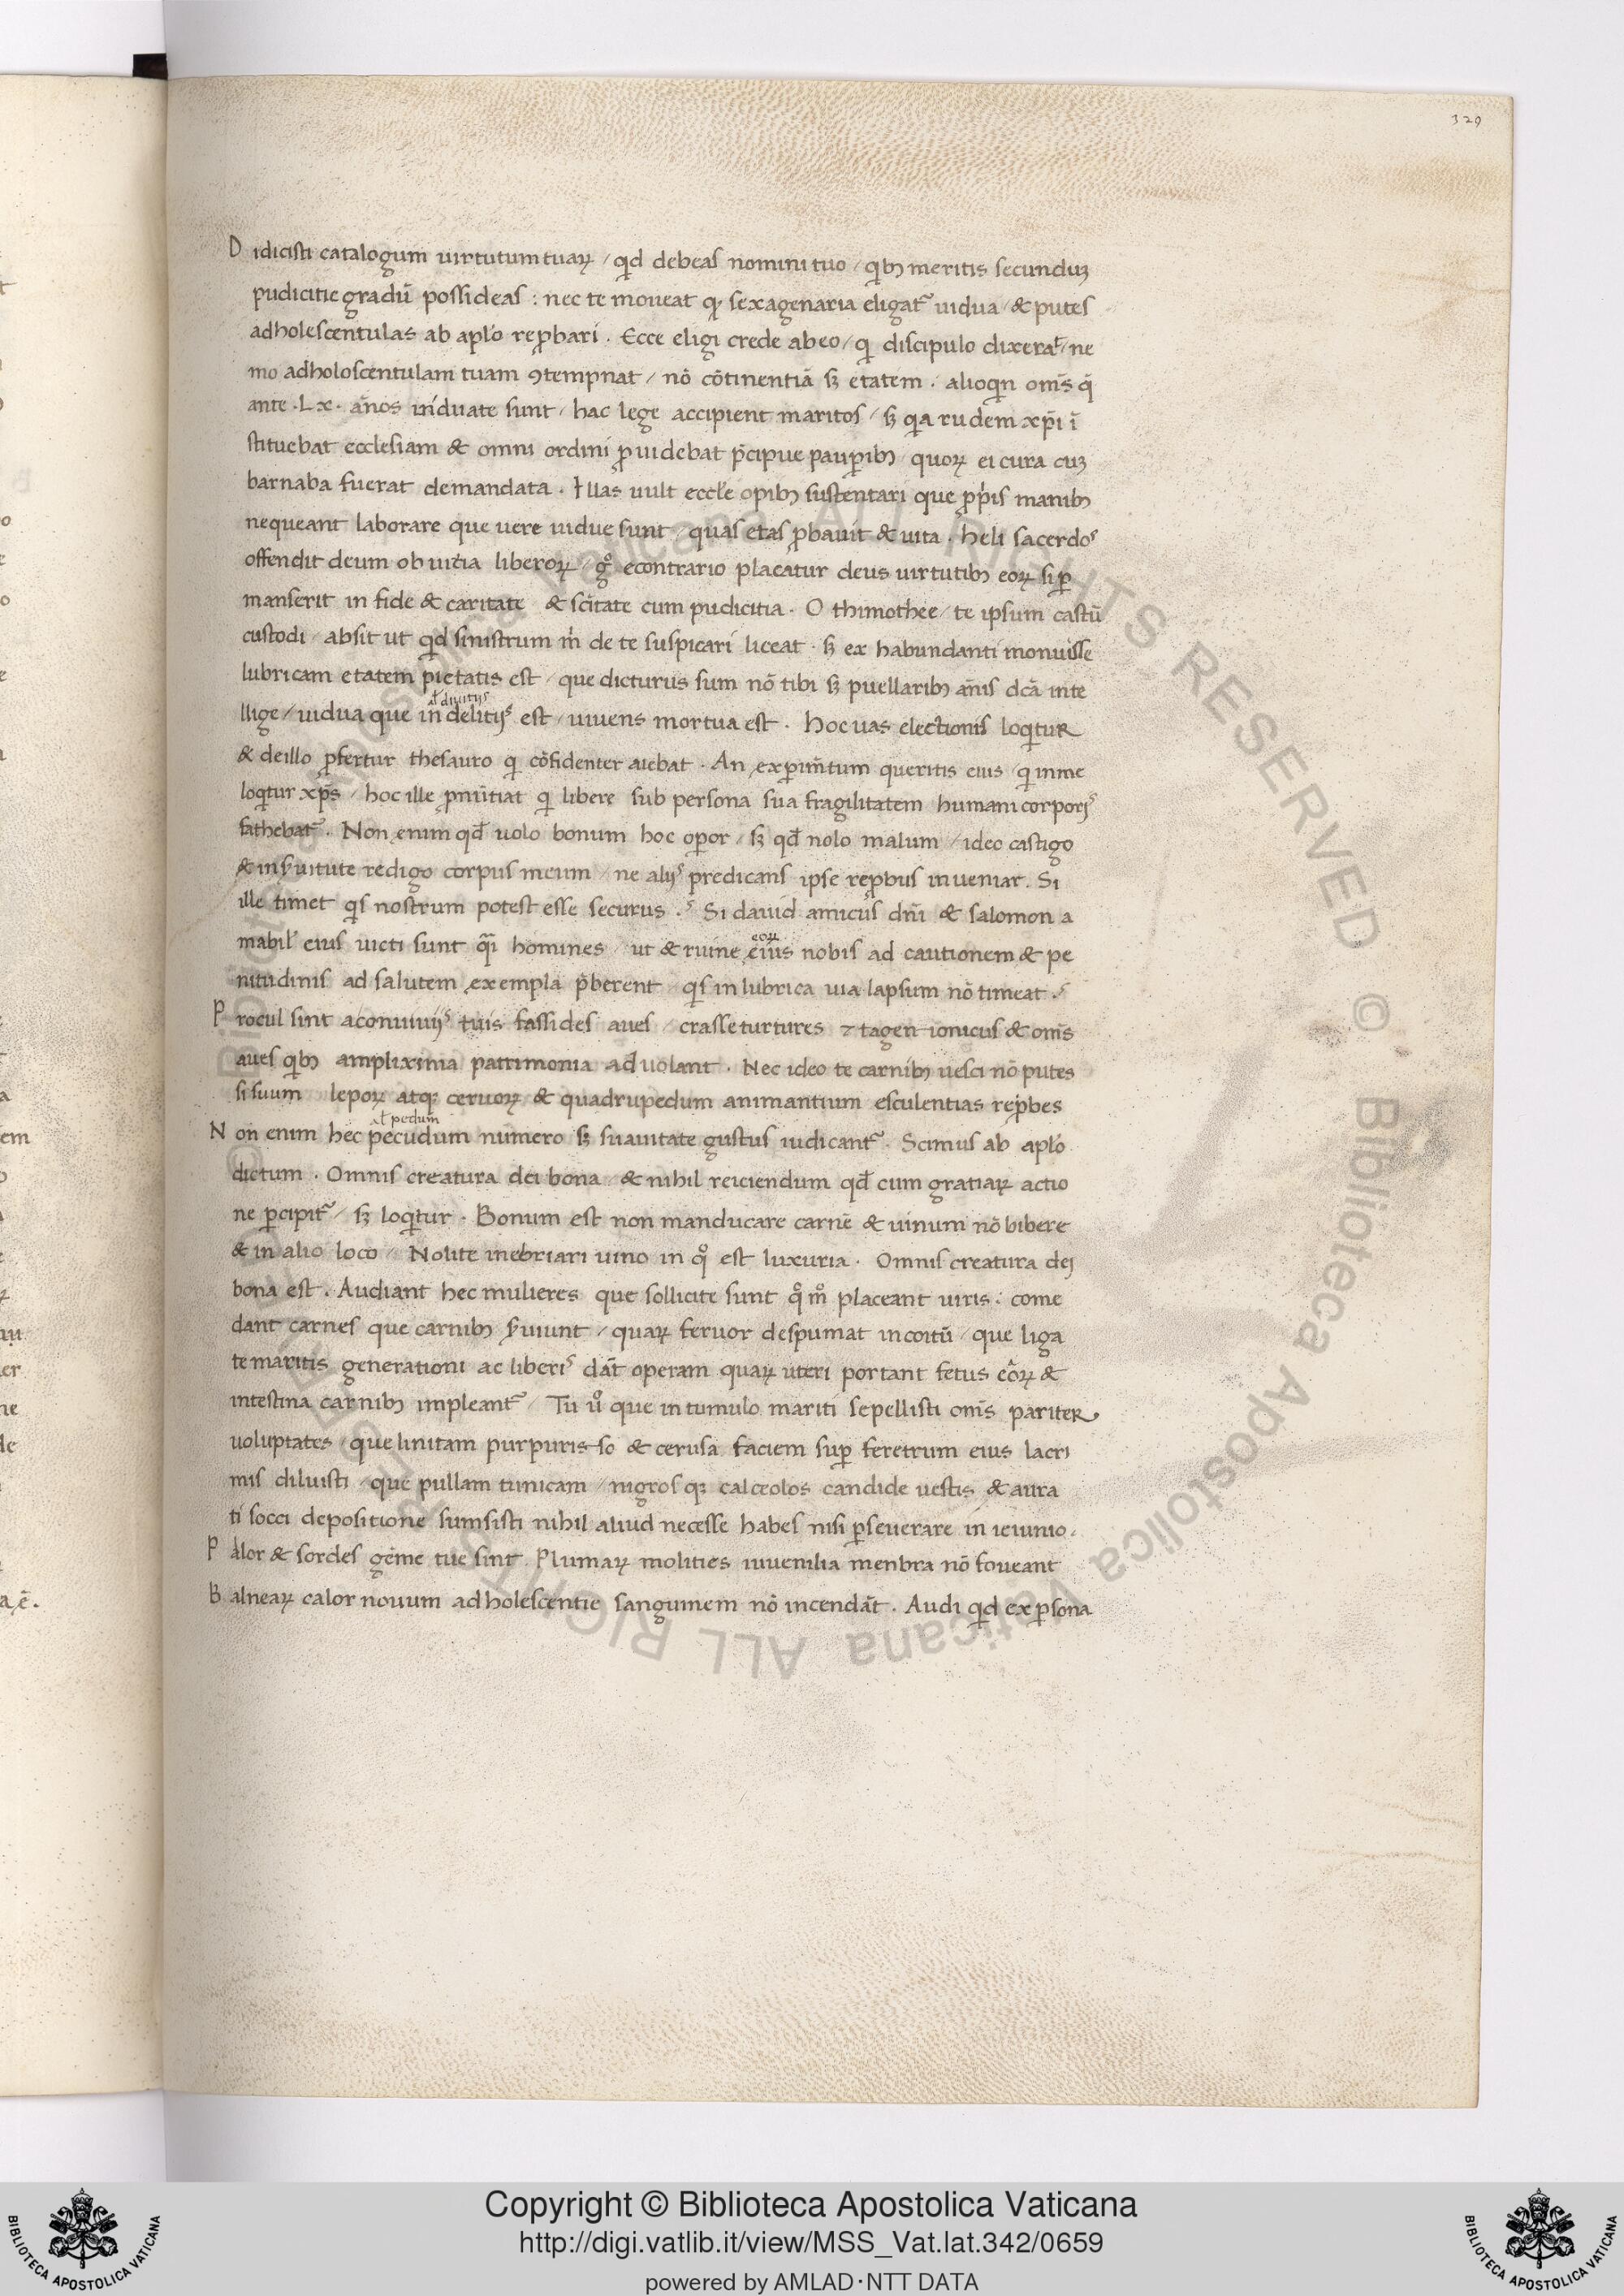 329
Didicisti catalogum uirtutum tuaꝝ / qd debeas nomini tuo / qbꝫ meritis secunduꝫ
pudicitie gradū possideas : nec te moueat qꝫ sexagenaria eligat᷑ uidua / & putes
adholescentulas ab apło reꝓbari . Ecce eligi crede ab eo / q discipulo dixerat / ne
mo adholoscentulam tuam ꝯtempnat / nō cōtinentiā sꝫ etatem . alioqn om̄s q̄
ante . Lx . an̄os uiduate sunt / hac lege accipient maritos / sꝫ qa rudem xp̄i ī
stituebat ecclesiam & omni ordini ꝓuidebat p̄cipue pauꝑibꝫ / quoꝝ ei cura cuꝫ
barnaba fuerat demandata . Illas uult eccłe opibꝫ sustentari que ꝓp̄is manibꝫ
nequeant laborare que uere uidue sunt / quas etas ꝓbauit & uita . heli sacerdos
offendit deum ob uitia liberoꝝ / gͦ econtrario placatur deus uirtutibꝫ eoꝝ si ꝑ
manserit in fide & caritate & sc̄itate cum pudicitia . O thimothee / te ipsum castū
custodi / absit ut qd sinistrum m̄ de te suspicari liceat . sꝫ ex habundanti monuisse
lubricam etatem pietatis est / que dicturus sum nō tibi sꝫ puellaribꝫ an̄is dc̄ā inte
ał diuitijs
llige / uidua que in delitijs est / uiuens mortua est . hoc uas electionis loqtur
& de illo ꝓfertur thesauro q cōfidenter aiebat . An exꝑim̄tum queritis eius / q in me
loqtur xp̄s / hoc ille ꝓnūtiat q libere sub persona sua fragilitatem humani corporis
fathebat᷑ . Non enim qđ uolo bonum hoc oꝑor / sꝫ qđ nolo malum / ideo castigo
& in s̄uitute redigo corpus meum / ne alijs predicans ipse reꝓbus inueniar . Si
ille timet qs nostrum potest esse securus . Si dauid amicus dn̄i & salomon a
mabil' eius uicti sunt qi homines / ut & ruine eius nobis ad cautionem & pe
eoꝝ
nitudinis ad salutem exempla p̄berent / qs in lubrica uia lapsum nō timeat .
Procul sint a conuiuijs tuis fassides aues / crasse turtures ⁊ tagen ionicus & om̄s
aues qbꝫ amplixima patrimonia aduolant . Nec ideo te carnibꝫ uesci nō putes
si suum leporꝝ atqꝫ ceruoꝝ & quadrupedum animantium esculentias reꝓbes
ał pedum
Non enim hec pecudum numero sꝫ suauitate gustus iudicant᷑ . Scimus ab apło
dictum . Omnis creatura dei bona / & nihil reiciendum qđ cum gratiaꝝ actio
ne ꝑcipit᷑ / sꝫ loqtur . Bonum est non manducare carnē & uinum nō bibere
& in alio loco / Nolite inebriari uino in qͦ est luxuria . Omnis creatura dei
bona est . Audiant hec mulieres que sollicite sunt qͦmͦ placeant uiris : come
dant carnes que carnibꝫ s̄uiunt / quaꝝ feruor despumat in coitū / que liga
te maritis generationi ac liberis dāt operam quaꝝ uteri portant fetus eoꝝ &
intestina carnibꝫ impleant᷑ / Tu uͦ que in tumulo mariti sepellisti om̄s pariter
uoluptates / que linitam purpurisso & cerusa faciem suꝑ feretrum eius lacri
mis diluisti / que pullam tunicam / nigros qꝫ calceolos candide uestis & aura
ti socci depositione sumsisti nihil aliud necesse habes nisi ꝑseuerare in ieiunio .
Palor & sordes gēme tue sint . Plumaꝝ molities iuuenilia menbra nō foueant
Balneaꝝ calor nouum adholescentie sanguinem nō incendāt . Audi qd ex ꝑsona
Copyright © Biblioteca Apostolica Vaticana
http://digi.vatlib.it/view/MSS_Vat.lat.342/0659
powered by AMLAD·NTT DATA
BIBLIOTECA APOSTOLICA VATICANA
BIBLIOTECA APOSTOLICA VATICANA
© Biblioteca Apostolica Vaticana ALL RIGHTS RESERVED © Biblioteca Apostolica Vaticana ALL RIGHTS RESERVED